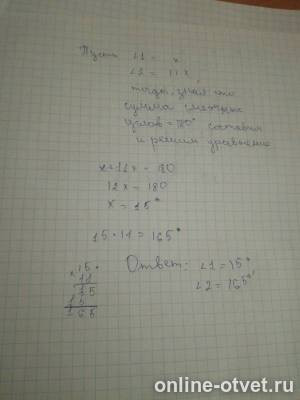 Пусть ∠1 = x
∠2 = 11x,
тогда, зная что
сумма смежных
углов = 180° составим
и решим уравнение
x+11x = 180
12x = 180
x = 15°
15 · 11 = 165°
Ответ: ∠1 = 15°
∠2 = 165°
×15
11
15
15
165
online-otvet.ru